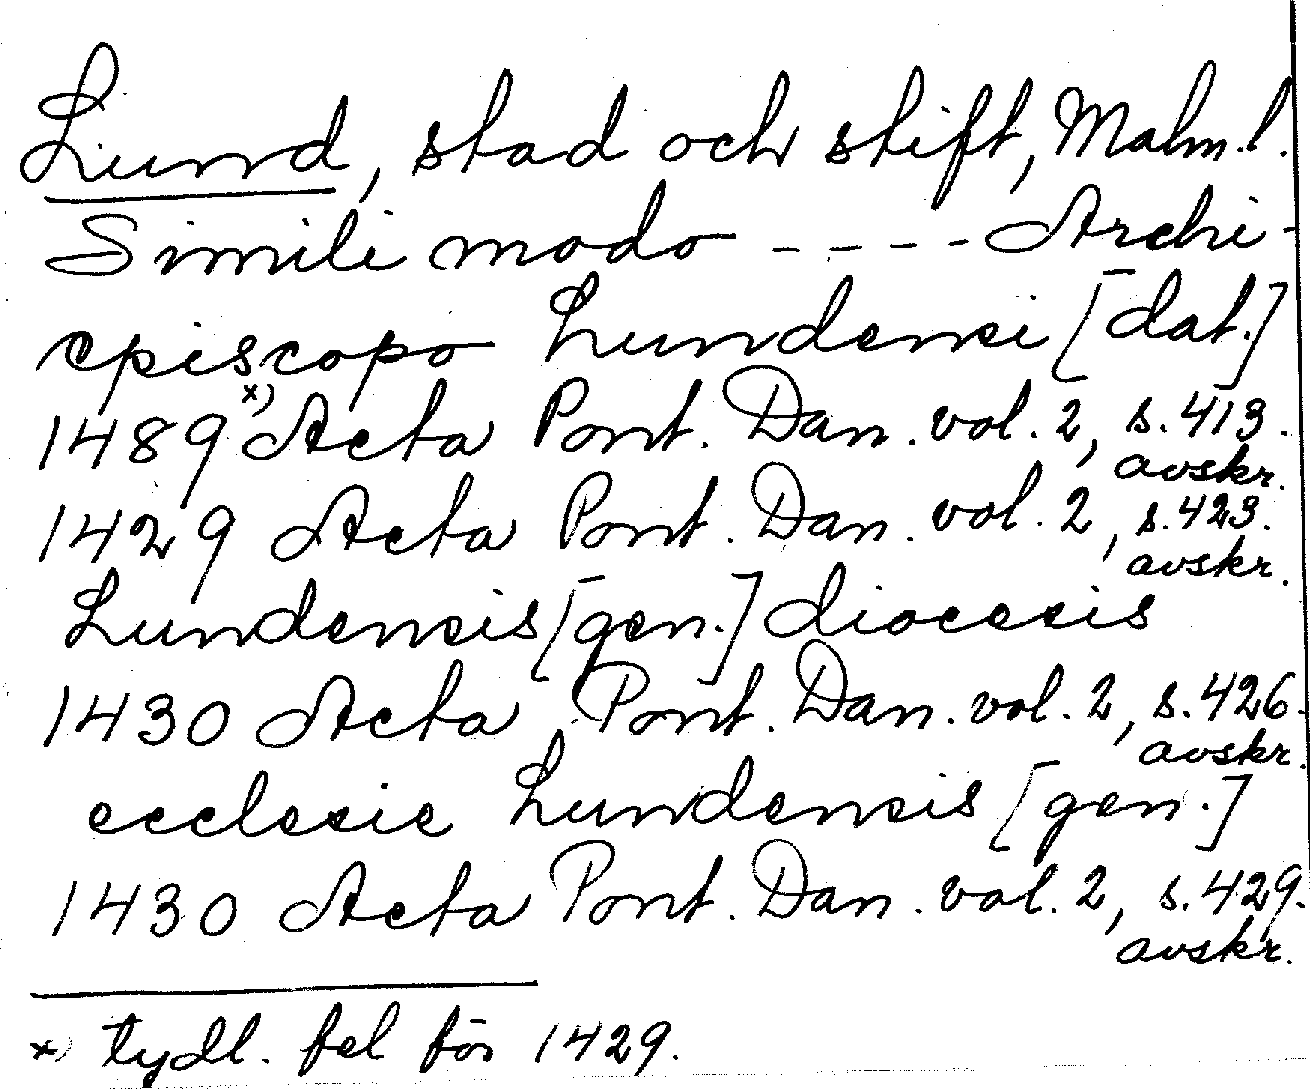 Lund, stad och stift, Malm.l.
Simili modo - - - - Archi-
episcopo Lundensi [dat.]
1489 x) Acta Pont. Dan. vol. 2, s. 413.
avskr.
1429 Acta Pont. Dan. vol. 2, s. 423.
avskr.
Lundensis [gen.] diocesis
1430 Acta Pont. Dan. vol. 2, s. 426.
avskr.
ecclesie Lundensis [gen.]
1430 Acta Pont. Dan. vol. 2, s. 429.
avskr.
x) tydl. fel för 1429.